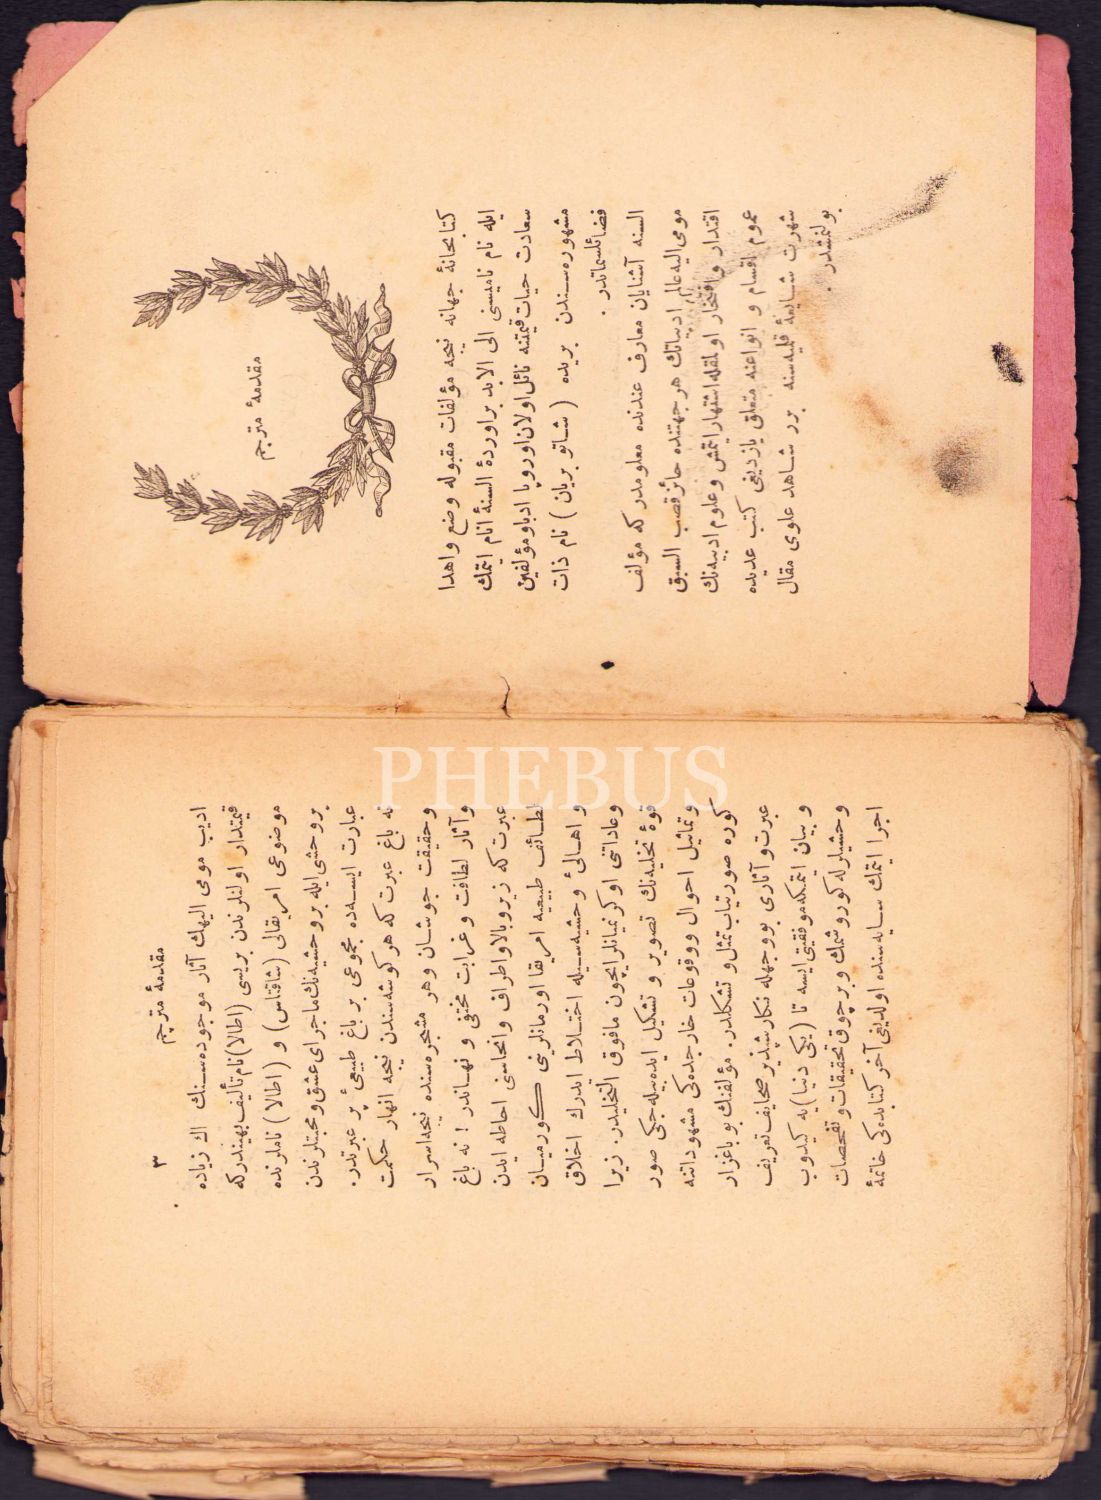 مقدمهٔ مترجم
كتابخانهٔ جهانه نيجه مؤلفات مقبوله وضع واهدا
ايله نام ناميسنى الى الابد براوردهٔ السنهٔ انام ايتمك
سعادت حيات قيمتنه نائل اولان اوروپا ادبا ومؤلفين
مشهوره سندن بريده ( شاتو بريان ) نام ذات
فضائلسماتدر .
السنه آشنايان معارف عندنده معلومدر كه مؤلف
مومى اليه عالم ادبياتك هر جهتنده حائز قصب السبق
اقتدار وافتخار اولمقله اشتهار ايتمش وعلوم ادبيه نك
عموم اقسام و انواعنه متعلق يازديغى كتب عديده
شهرت شايعهٔ قلميه سنه برر شاهد علوى مقال
بولنمشدر .
مقدمهٔ مترجم
٣
اديب مومى اليهك آثار موجوده سنك اك زياده
قيمتدار اولنلرندن بريسى (اطالا) نام تأليف بهيندركه
موضوعى امريقالى (شاقتاس) و (اطالا) ناملرنده
بروحشى ايله بروحشيه نك ماجراى عشق ومحبتلرندن
عبارت ايسه ده مجموعى بر باغ طبيعئ پر عبرتدر.
نه باغ عبرت كه هر كوشه سندن نيجه انهار حكمت
وحقيقت جوشان وهر مشجره سنده نيجه اسرار
وآثار لطافت وغرابت مختفى و نهاندر ! نه باغ
عبرت كه زيروبالا واطراف وانحاسنى احاطه ايدن
لطائف طبيعيه امريقا اورمانلرينى كورميان
و اهالئ وحشيه سيله اختلاط ايدرك اخلاق
وعاداتنى اوكرنميانلر ايچون مافوق التخيلدر. زيرا
قوهٔ تخيليه نك تصوير و تشكيل ايده بيله جكى صور
و تماثيل احوال ووقوعات خارجده كى مشهوداتنه
كوره صورتياب تمثل وتشكلدر. مؤلفنك بو باغزار
عبرت و آثارى بووجهله نكارشپذير صحايف تعريف
و بيان ايتمكه موفقيتى ايسه تا (يكى دنيا) يه كيدوب
وحشيلرله كوروشمك وبرچوق تحقيقات وتفحصات
اجرا ايتمك سايه سنده اولديغى آخر كتابده كى خاتمهٔ
PHEBUS